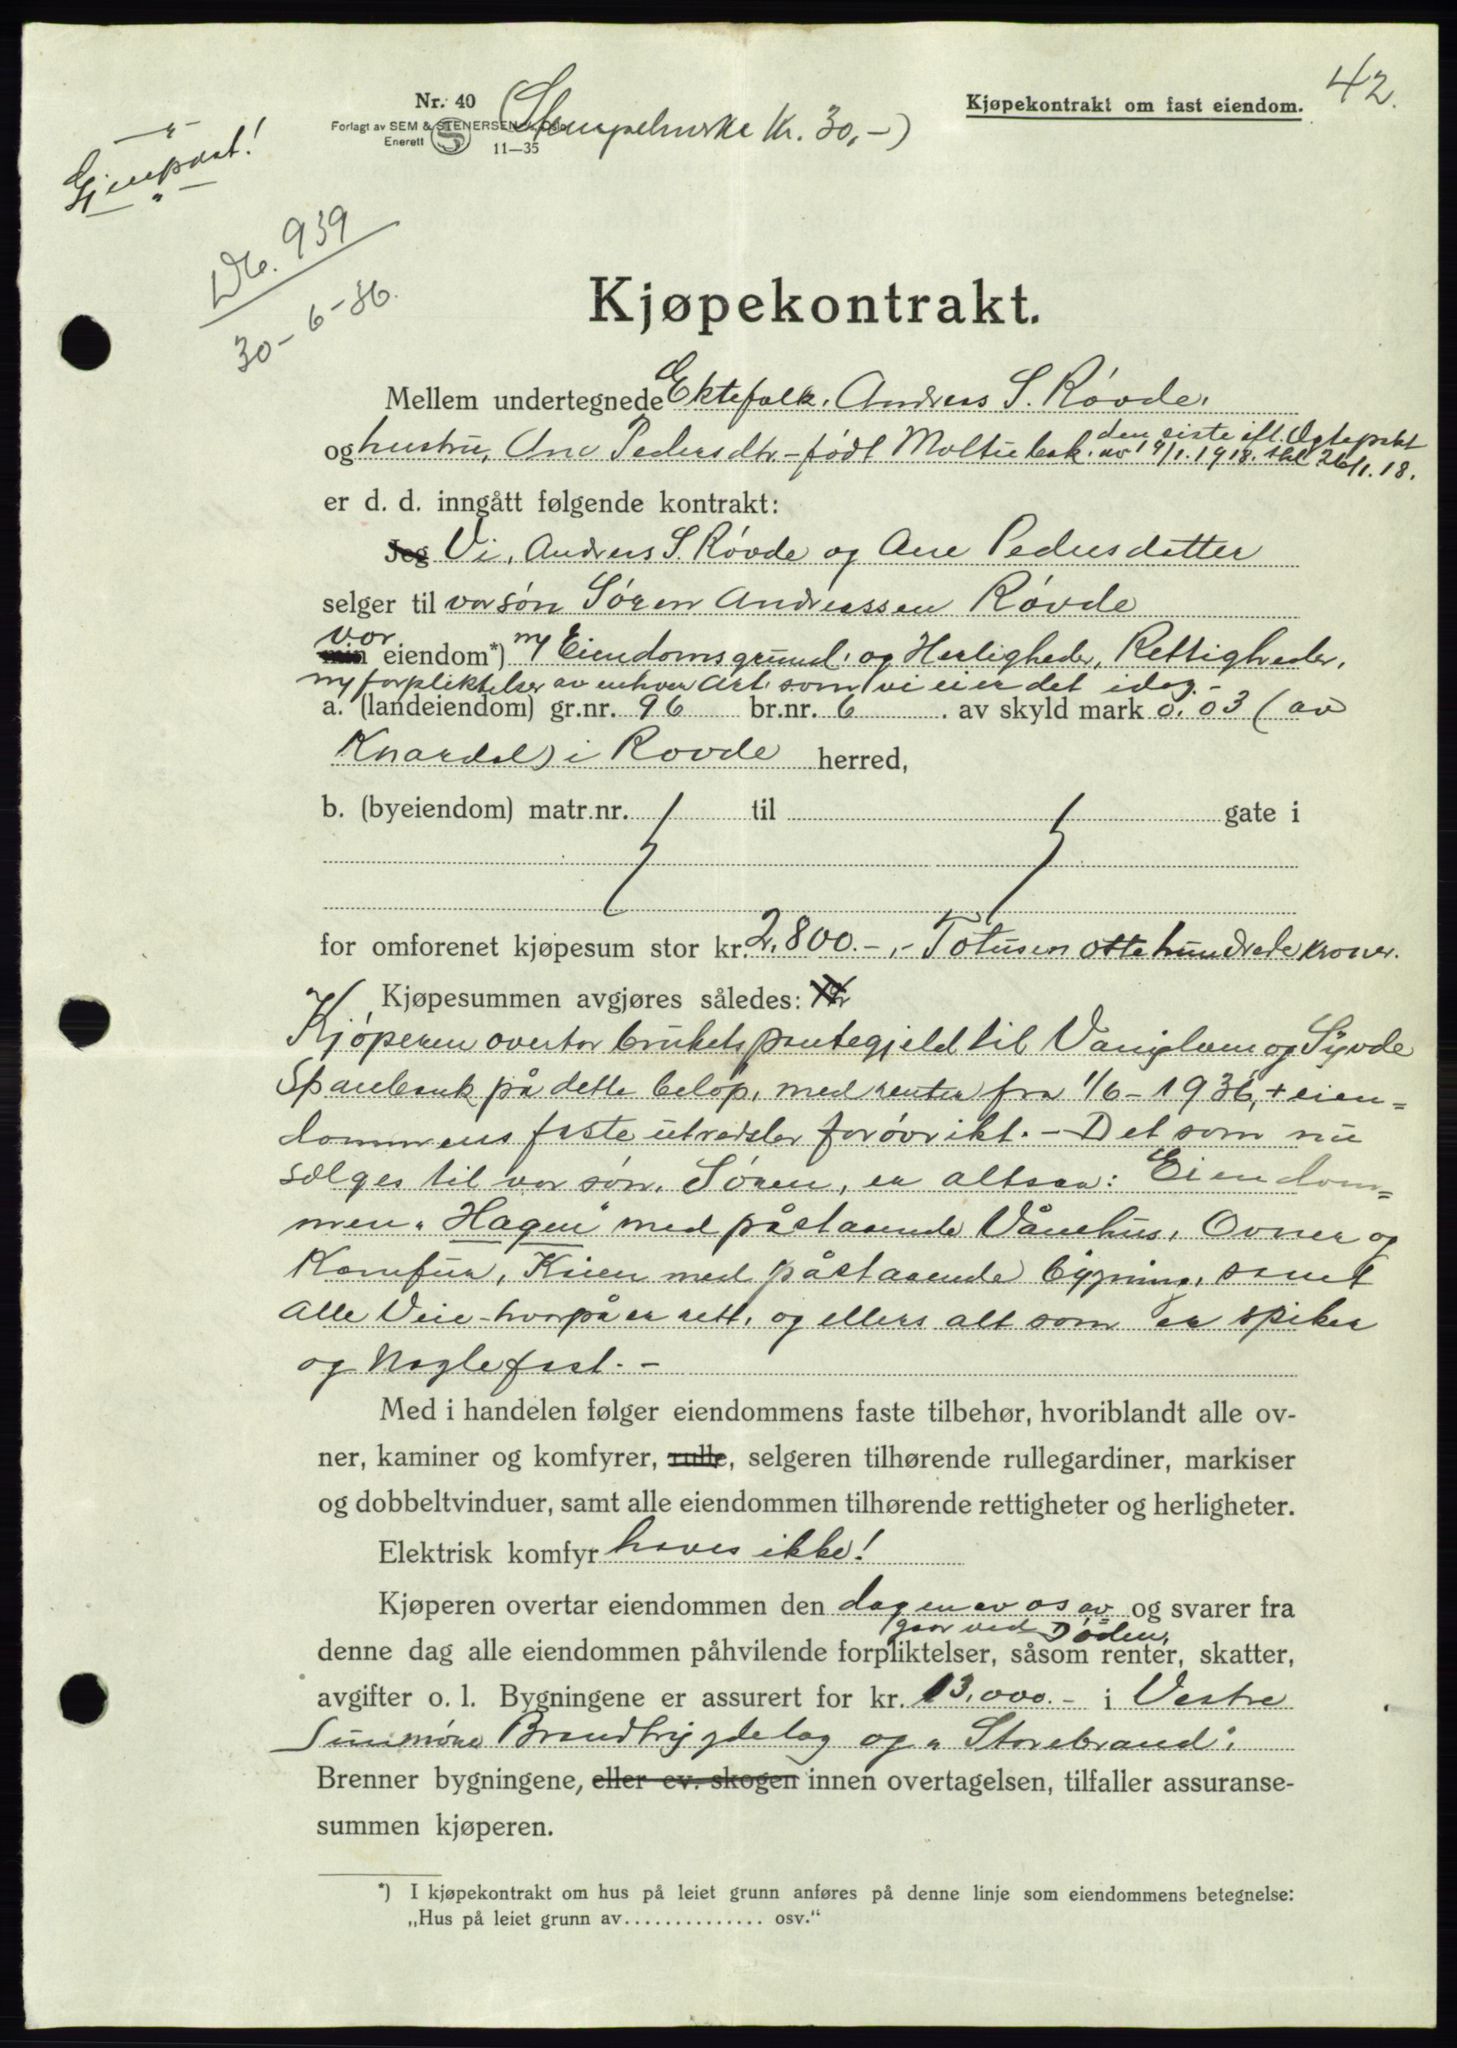 42.
Nr. 40
Kjøpekontrakt om fast eiendom.
Forlagt av SEM & STENERSEN A/S, Oslo
Enerett
11—35
(Stempelmerke Kr. 30,-)
Gjenpart!
No. 939
30-6-36.
Kjøpekontrakt.
Mellem undertegnede Ektefolk, Andreas S. Røvde,
og hustru, Ane Pedersdtr. - født Moltubak. den siste eft. Ægtepakt av 19/1. 1918. tkl 26/1.18.
er d. d. inngått følgende kontrakt:
Jeg Vi, Andreas S. Røvde og Ane Pedersdatter
selger til vor søn Søren Andreassen Røvde
min vor eiendom*) m/ Eiendomsgrund, og Herligheder, Rettigheder,
m/ forpliktelser av enhver Art, som vi eier det idag.-
a. (landeiendom) gr.nr. 96 br.nr. 6 av skyld mark 0.03 (av
Knardal) i Rovde herred,
b. (byeiendom) matr.nr. til gate i
for omforenet kjøpesum stor kr. 2,800.-,- Totusen ottehundrede kroner.
Kjøpesummen avgjøres således:
Kjøperen overtar brukets pantegjeld til Vanylven og Syvde
Sparebank på dette beløp, med renter fra 1/6-1936, + eien=
dommens faste utredsler forøvrikt. - Det som nu
sælges til vor søn, Søren, er altsaa: Eiendom=
men "Hagen" med påstaaende Vånehus, Ovner og
Komfur, Kaien med påstaaende bygning, samt
alle Veie - hvorpå er rett, og ellers alt som er spiker
og Naglefast. -
Med i handelen følger eiendommens faste tilbehør, hvoriblandt alle ov-
ner, kaminer og komfyrer, rulle, selgeren tilhørende rullegardiner, markiser
og dobbeltvinduer, samt alle eiendommen tilhørende rettigheter og herligheter.
Elektrisk komfyr haves ikke!
Kjøperen overtar eiendommen den dag en av os av og svarer fra
gaar ved Døden,
denne dag alle eiendommen påhvilende forpliktelser, såsom renter, skatter,
avgifter o. l. Bygningene er assurert for kr. 13,000.- i Vestre
Sunmøre Brandtrygdelag og "Storebrand".
Brenner bygningene, eller ev. skogen innen overtagelsen, tilfaller assuranse-
summen kjøperen.
*) I kjøpekontrakt om hus på leiet grunn anføres på denne linje som eiendommens betegnelse:
„Hus på leiet grunn av.............. osv."